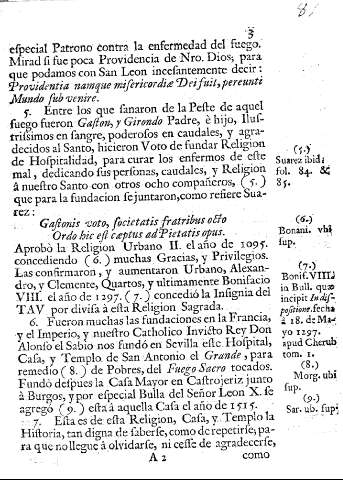 3
especial Patrono contra la enfermedad del fuego.
Mirad si fue poca Providencia de Nro. Dios; para
que podamos con San Leon incesantemente decir:
Providentia namque misericordiæ Dei fuit, pereunti
Mundo subvenire.
5. Entre los que sanaron de la Peste de aquel
fuego fueron Gaston, y Girondo Padre, è hijo, Ilus-
trissimos en sangre, poderosos en caudales, y agra-
decidos al Santo, hicieron Voto de fundar Religion
de Hospitalidad, para curar los enfermos de este
mal, dedicando sus personas, caudales, y Religion
à nuestro Santo con otros ocho compañeros, (5.)
que para la fundacion se juntaron, como refiere Sua-
rez:
Gastonis voto, societatis fratribus octo
Ordo hic est cæptus ad Pietatis opus.
Aprobò la Religion Urbano II. el año de 1095.
concediendo (6.) muchas Gracias, y Privilegios.
Las confirmaron, y aumentaron Urbano, Alexan-
dro, y Clemente, Quartos, y ultimamente Bonifacio
VIII. el año de 1297. (7.) concediò la Insignia del
TAV por divisa à esta Religion Sagrada.
6. Fueron muchas las fundaciones en la Francia,
y el Imperio, y nuestro Catholico Invicto Rey Don
Alonso el Sabio nos fundò en Sevilla este Hospital,
Casa, y Templo de San Antonio el Grande, para
remedio (8.) de Pobres, del Fuego Sacro tocados.
Fundò despues la Casa Mayor en Castroxeriz junto
à Burgos, y por especial Bulla del Señor Leon X. se
agregò (9.) esta à aquella Casa el año de 1515.
7. Esta es de esta Religion, Casa, y Templo la
Historia, tan digna de saberse, como de repetirse; pa-
ra que no llegue à olvidarse, ni cesse de agradecerse,
A 2 como
(5.)
Suarez ibid.
fol. 84 &
85.
(6.)
Bonani. vbi
sup.
(7.)
Bonif. VIII.
in Bull. quæ
incipit In dis-
positione. fecha
à 18. de Ma-
yo 1297.
apud Cherub
tom. 1.
(8.)
Morg. ubi
sup.
(9.)
Sar. ub. sup.